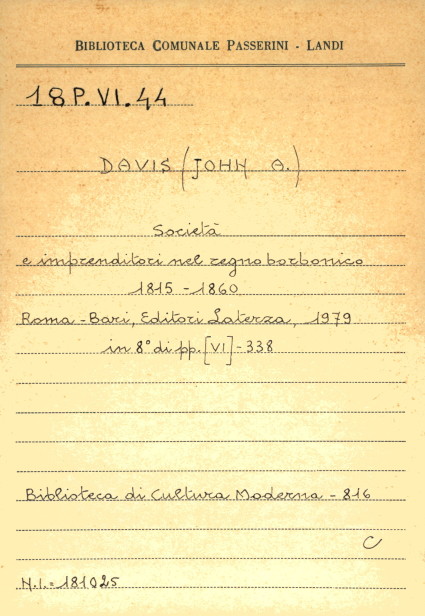 BIBLIOTECA COMUNALE PASSERINI - LANDI
18 P. VI. 44
DAVIS (JOHN A.)
Società
e imprenditori nel regno borbonico
1815 - 1860
Roma - Bari, Editori Laterza, 1979
in 8° di pp. [VI] - 338
Biblioteca di Cultura Moderna - 816
C
N.I. = 181025